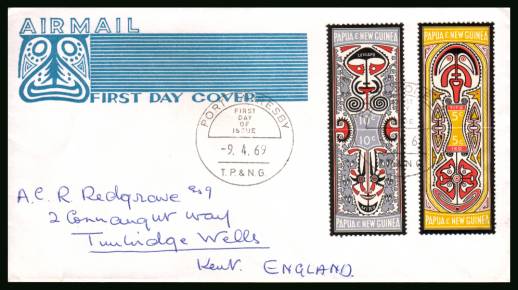 AIRMAIL
FIRST DAY COVER
PORT MORESBY
FIRST
DAY
OF
ISSUE
-9. 4. 69
T.P.& N.G.
PAPUA & NEW GUINEA
10c
PAPUA & NEW GUINEA
PAPUA & NEW GUINEA
5c
5c
PAPUA & NEW GUINEA
A.C. R Redgrave Esq
2 Connaught Way
Tunbridge Wells
Kent. ENGLAND.